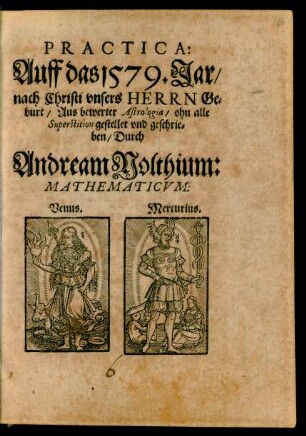 PRACTICA:
Auff das 1579. Jar/
nach Christi vnsers HERRN Ge-
burt/ Aus bewerter Astrologia/ ohn alle
Superstition gestellet vnd geschrie-
ben/ Durch
Andream Nolthium:
MATHEMATICVM:
Venus. Mercurius.